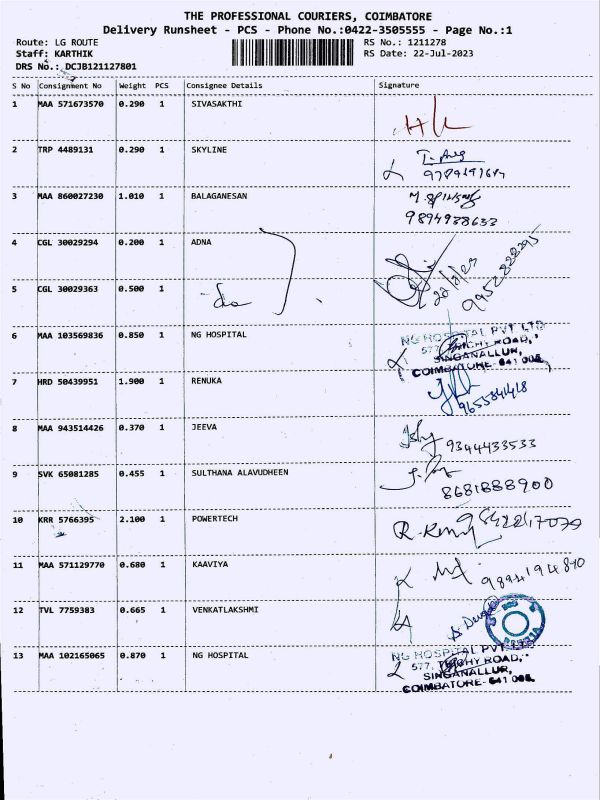 THE PROFESSIONAL COURIERS, COIMBATORE
Delivery Runsheet - PCS - Phone No.:0422-3505555 - Page No.:1
Route: LG ROUTE RS No.: 1211278
Staff: KARTHIK RS Date: 22-Jul-2023
DRS No.: DCJB121127801
S No Consignment No Weight PCS Consignee Details Signature
1 MAA 571673570 0.290 1 SIVASAKTHI
2 TRP 4489131 0.290 1 SKYLINE
3 MAA 860027230 1.010 1 BALAGANESAN
9894938633
4 CGL 30029294 0.200 1 ADNA
22/7/23
5 CGL 30029363 0.500 1 do
6 MAA 103569836 0.850 1 NG HOSPITAL
NG HOSPITAL PVT LTD
577, TRICHY ROAD,
SINGANALLUR,
COIMBATORE-641 005.
7 HRD 50439951 1.900 1 RENUKA
9655841418
8 MAA 943514426 0.370 1 JEEVA
9344433533
9 SVK 65081285 0.455 1 SULTHANA ALAVUDHEEN
8681888900
10 KRR 5766395 2.100 1 POWERTECH
11 MAA 571129770 0.680 1 KAAVIYA
12 TVL 7759383 0.665 1 VENKATLAKSHMI
13 MAA 102165065 0.870 1 NG HOSPITAL
NG HOSPITAL PVT
577, TRICHY ROAD,
SINGANALLUR,
COIMBATORE-641 005.